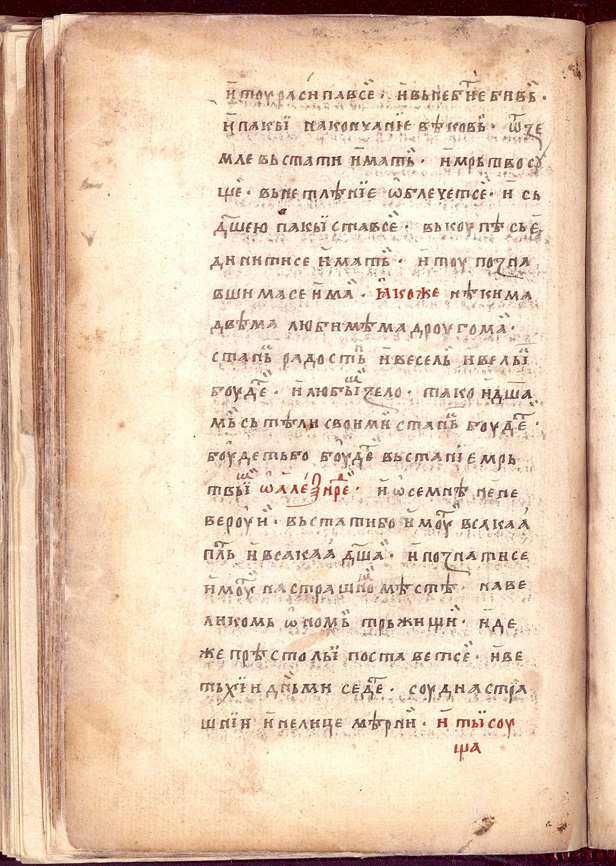 и҆ тоу расипавсе · и҆ вь небитїе бывь ·
и҆ пакы на кончанїе вѣковь · ѿ зе
мле вьстати и҆мать · и҆ мрьтво соу
ще · вь нетлѣнїе ѡ҆блечетсе · и҆ сь
дш҃ею пакы ставсе · вькоупѣ сье
динитисе и҆мать · и҆ тоу позна
вшимасе и҆ма · ꙗ҆коже нѣкима
двѣма любимѣма дроугома ·
стань радость и҆ веселїе велїи
боудеть · и҆ любы ꙁело · тако и҆ дш҃а
мь сь тѣли своими стань боудеть ·
боудеть бо боудеть вьстанїе мрь
твы ѡ҆ алеѯандре · и҆ ѡ҆ семь не не
вероуи · вьстати бо и҆моуть всакаа
пльть и҆ всакаа дш҃а · и҆ познатисе
и҆моуть на страшномь мѣстѣ · на ве
ликомь ѡ҆номь трьжищи · идe
же прѣстолы поставетсе · и҆ ве
тьхїи дньми седеть · соудїа стра
шнїи и҆ нелице мѣрни · и҆ ты соу
ща